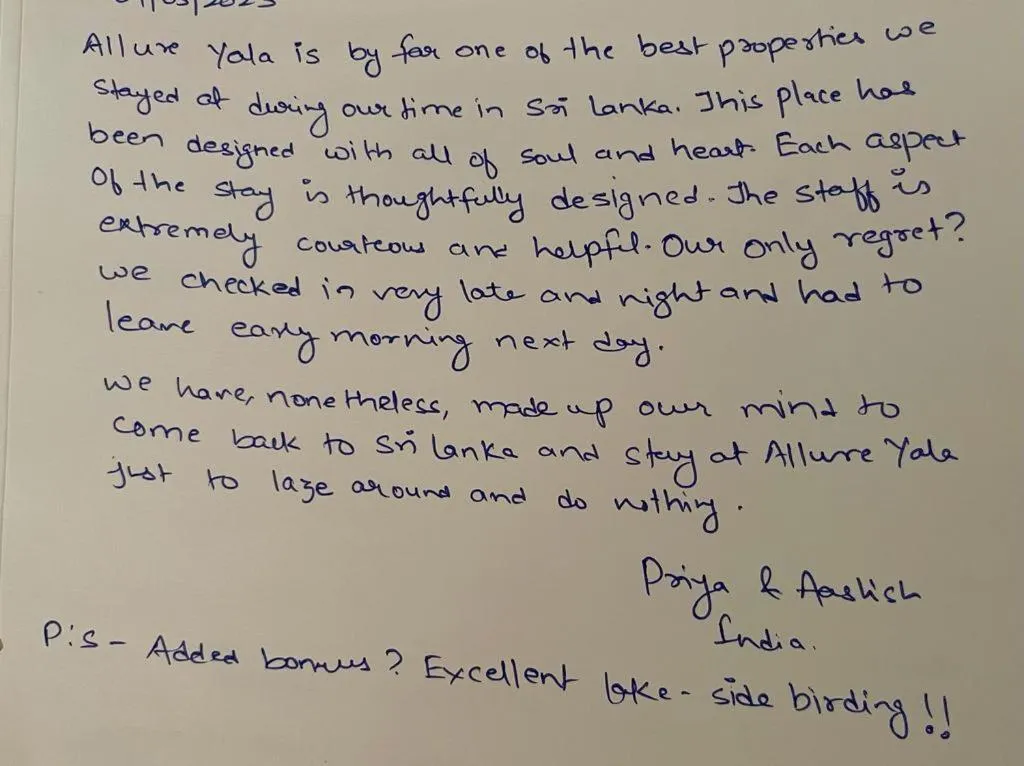 Allure Yala is by far one of the best properties we
stayed at during our time in Sri Lanka. This place has
been designed with all of soul and heart. Each aspect
of the stay is thoughtfully designed. The staff is
extremely courteous and helpful. Our only regret?
we checked in very late and night and had to
leave early morning next day.
we have, nonetheless, made up our mind to
come back to Sri Lanka and stay at Allure Yala
just to laze around and do nothing.
Priya & Aashish
India.
P:S - Added bonus? Excellent lake-side birding!!